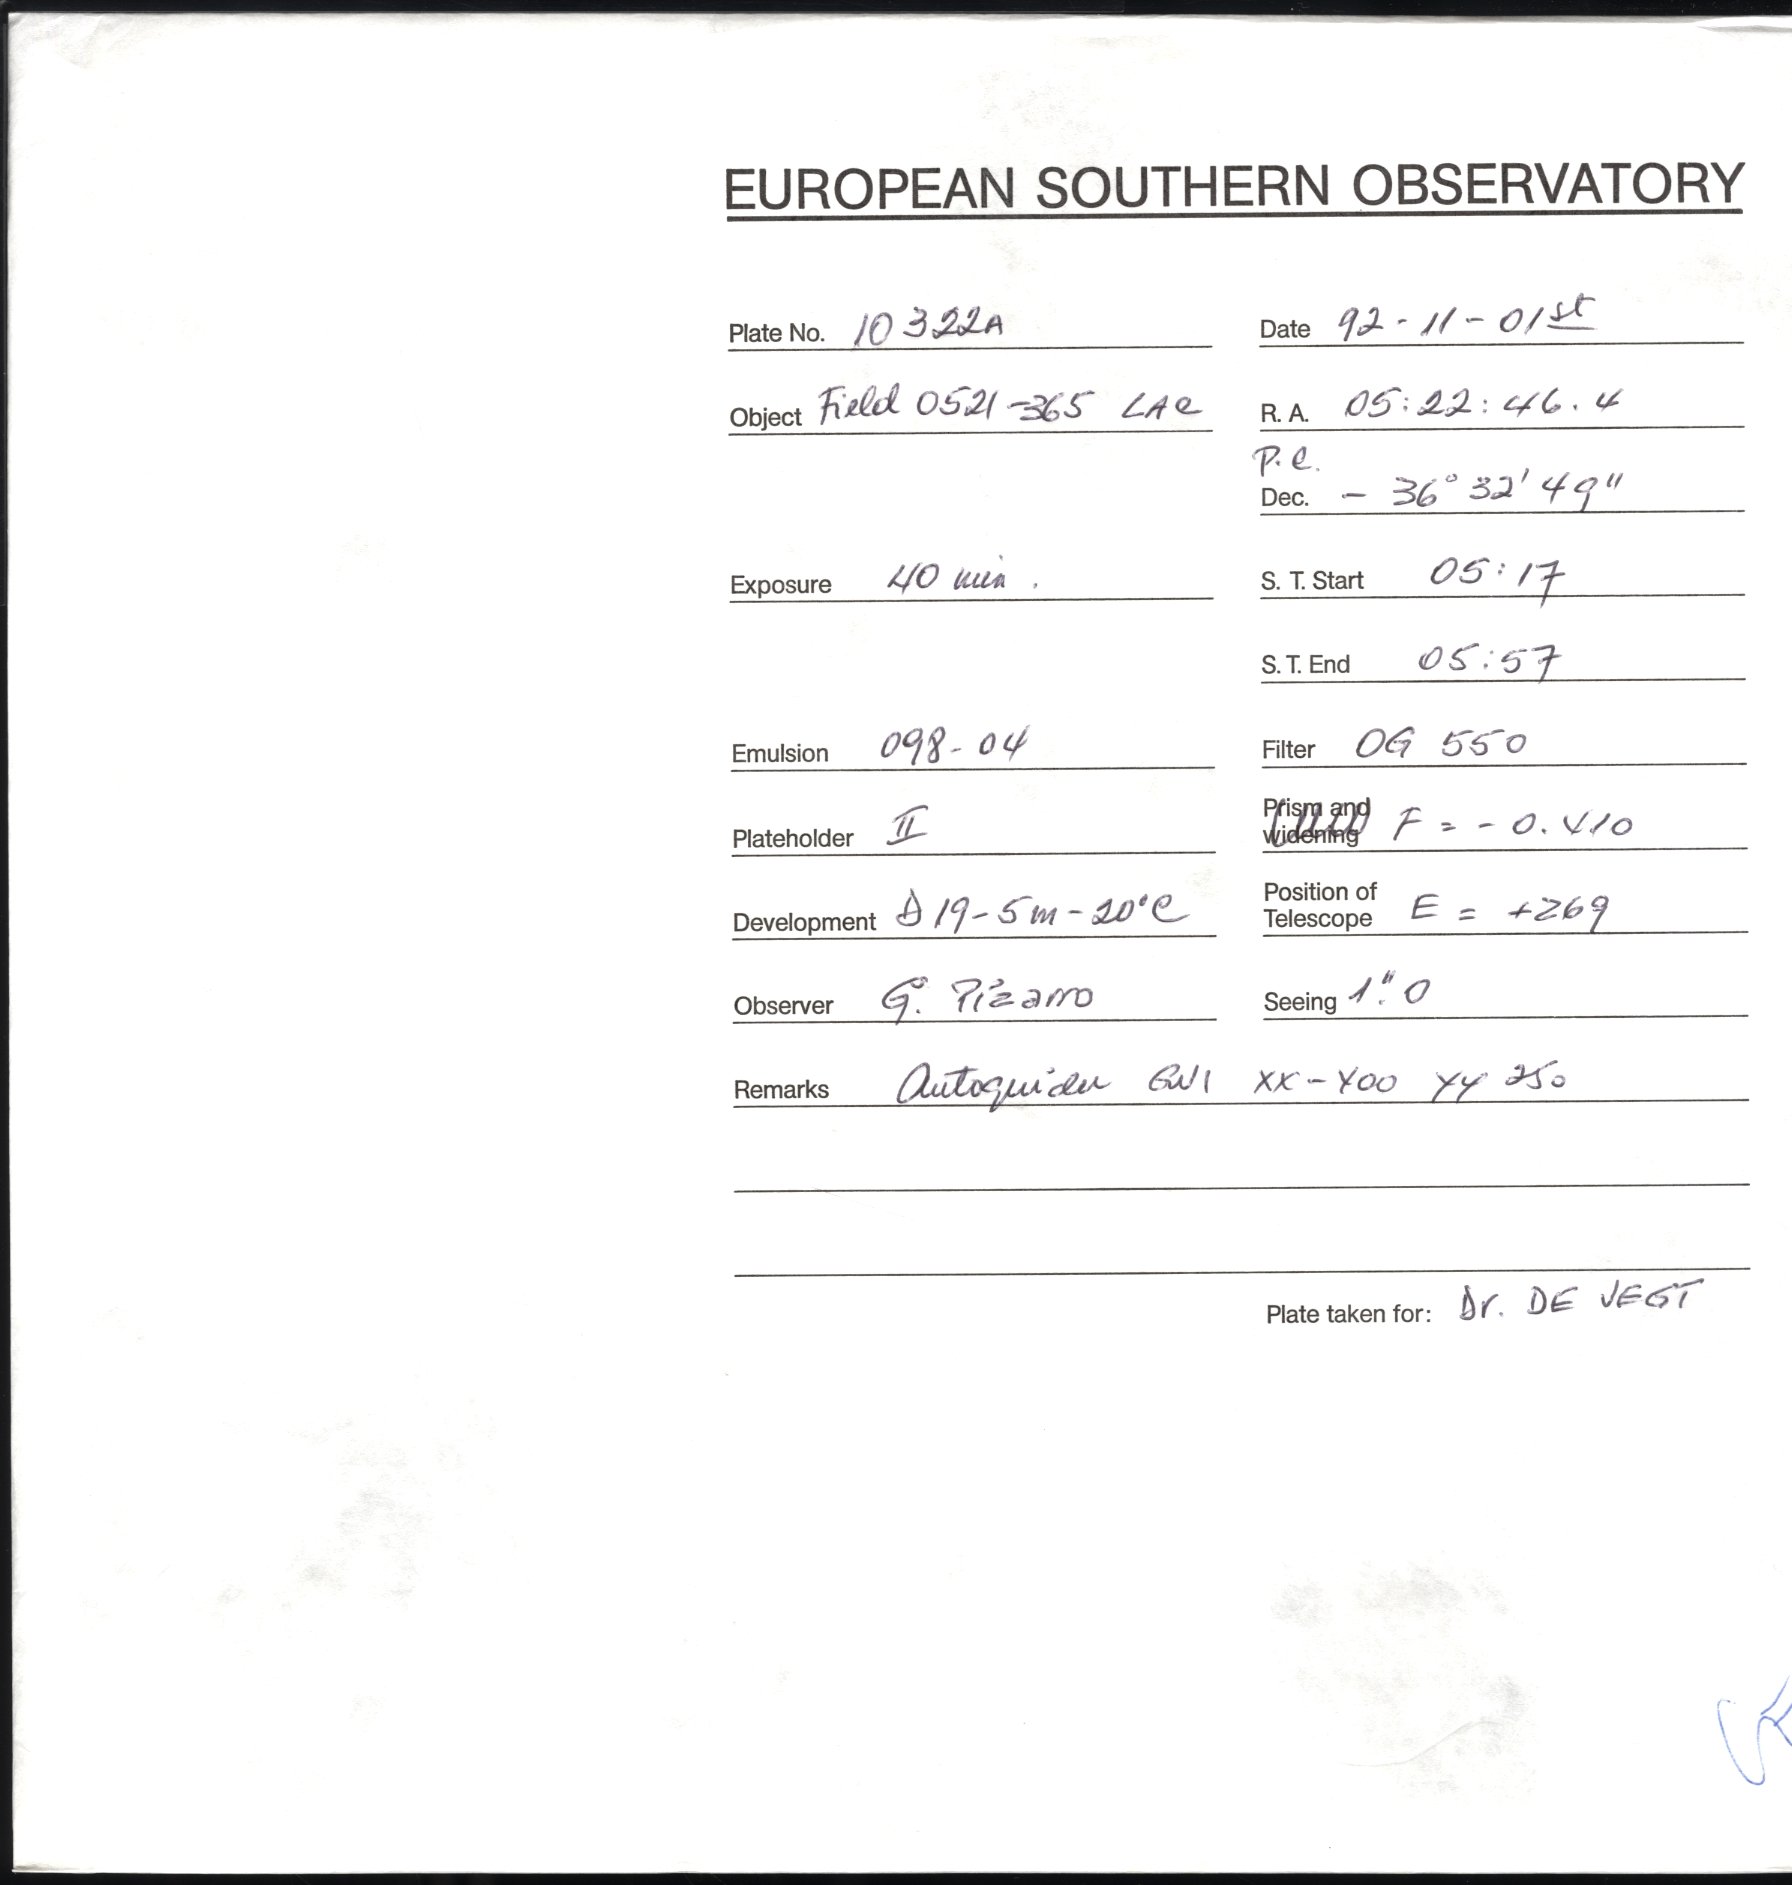 EUROPEAN SOUTHERN OBSERVATORY
Plate No. 10322A Date 92-11-01st
Object Field 0521-365 LAC R. A. 05:22:46.4
P.C.
Dec. - 36° 32' 49"
Exposure 40 min. S. T. Start 05:17
S. T. End 05:57
Emulsion 098-04 Filter OG 550
Plateholder II Prism and widening F = - 0.410
Development D19-5m-20°C Position of Telescope E = +269
Observer G. Pizarro Seeing 1".0
Remarks Autoguider XX-400 YY 250
Plate taken for: Dr. DE VEGT